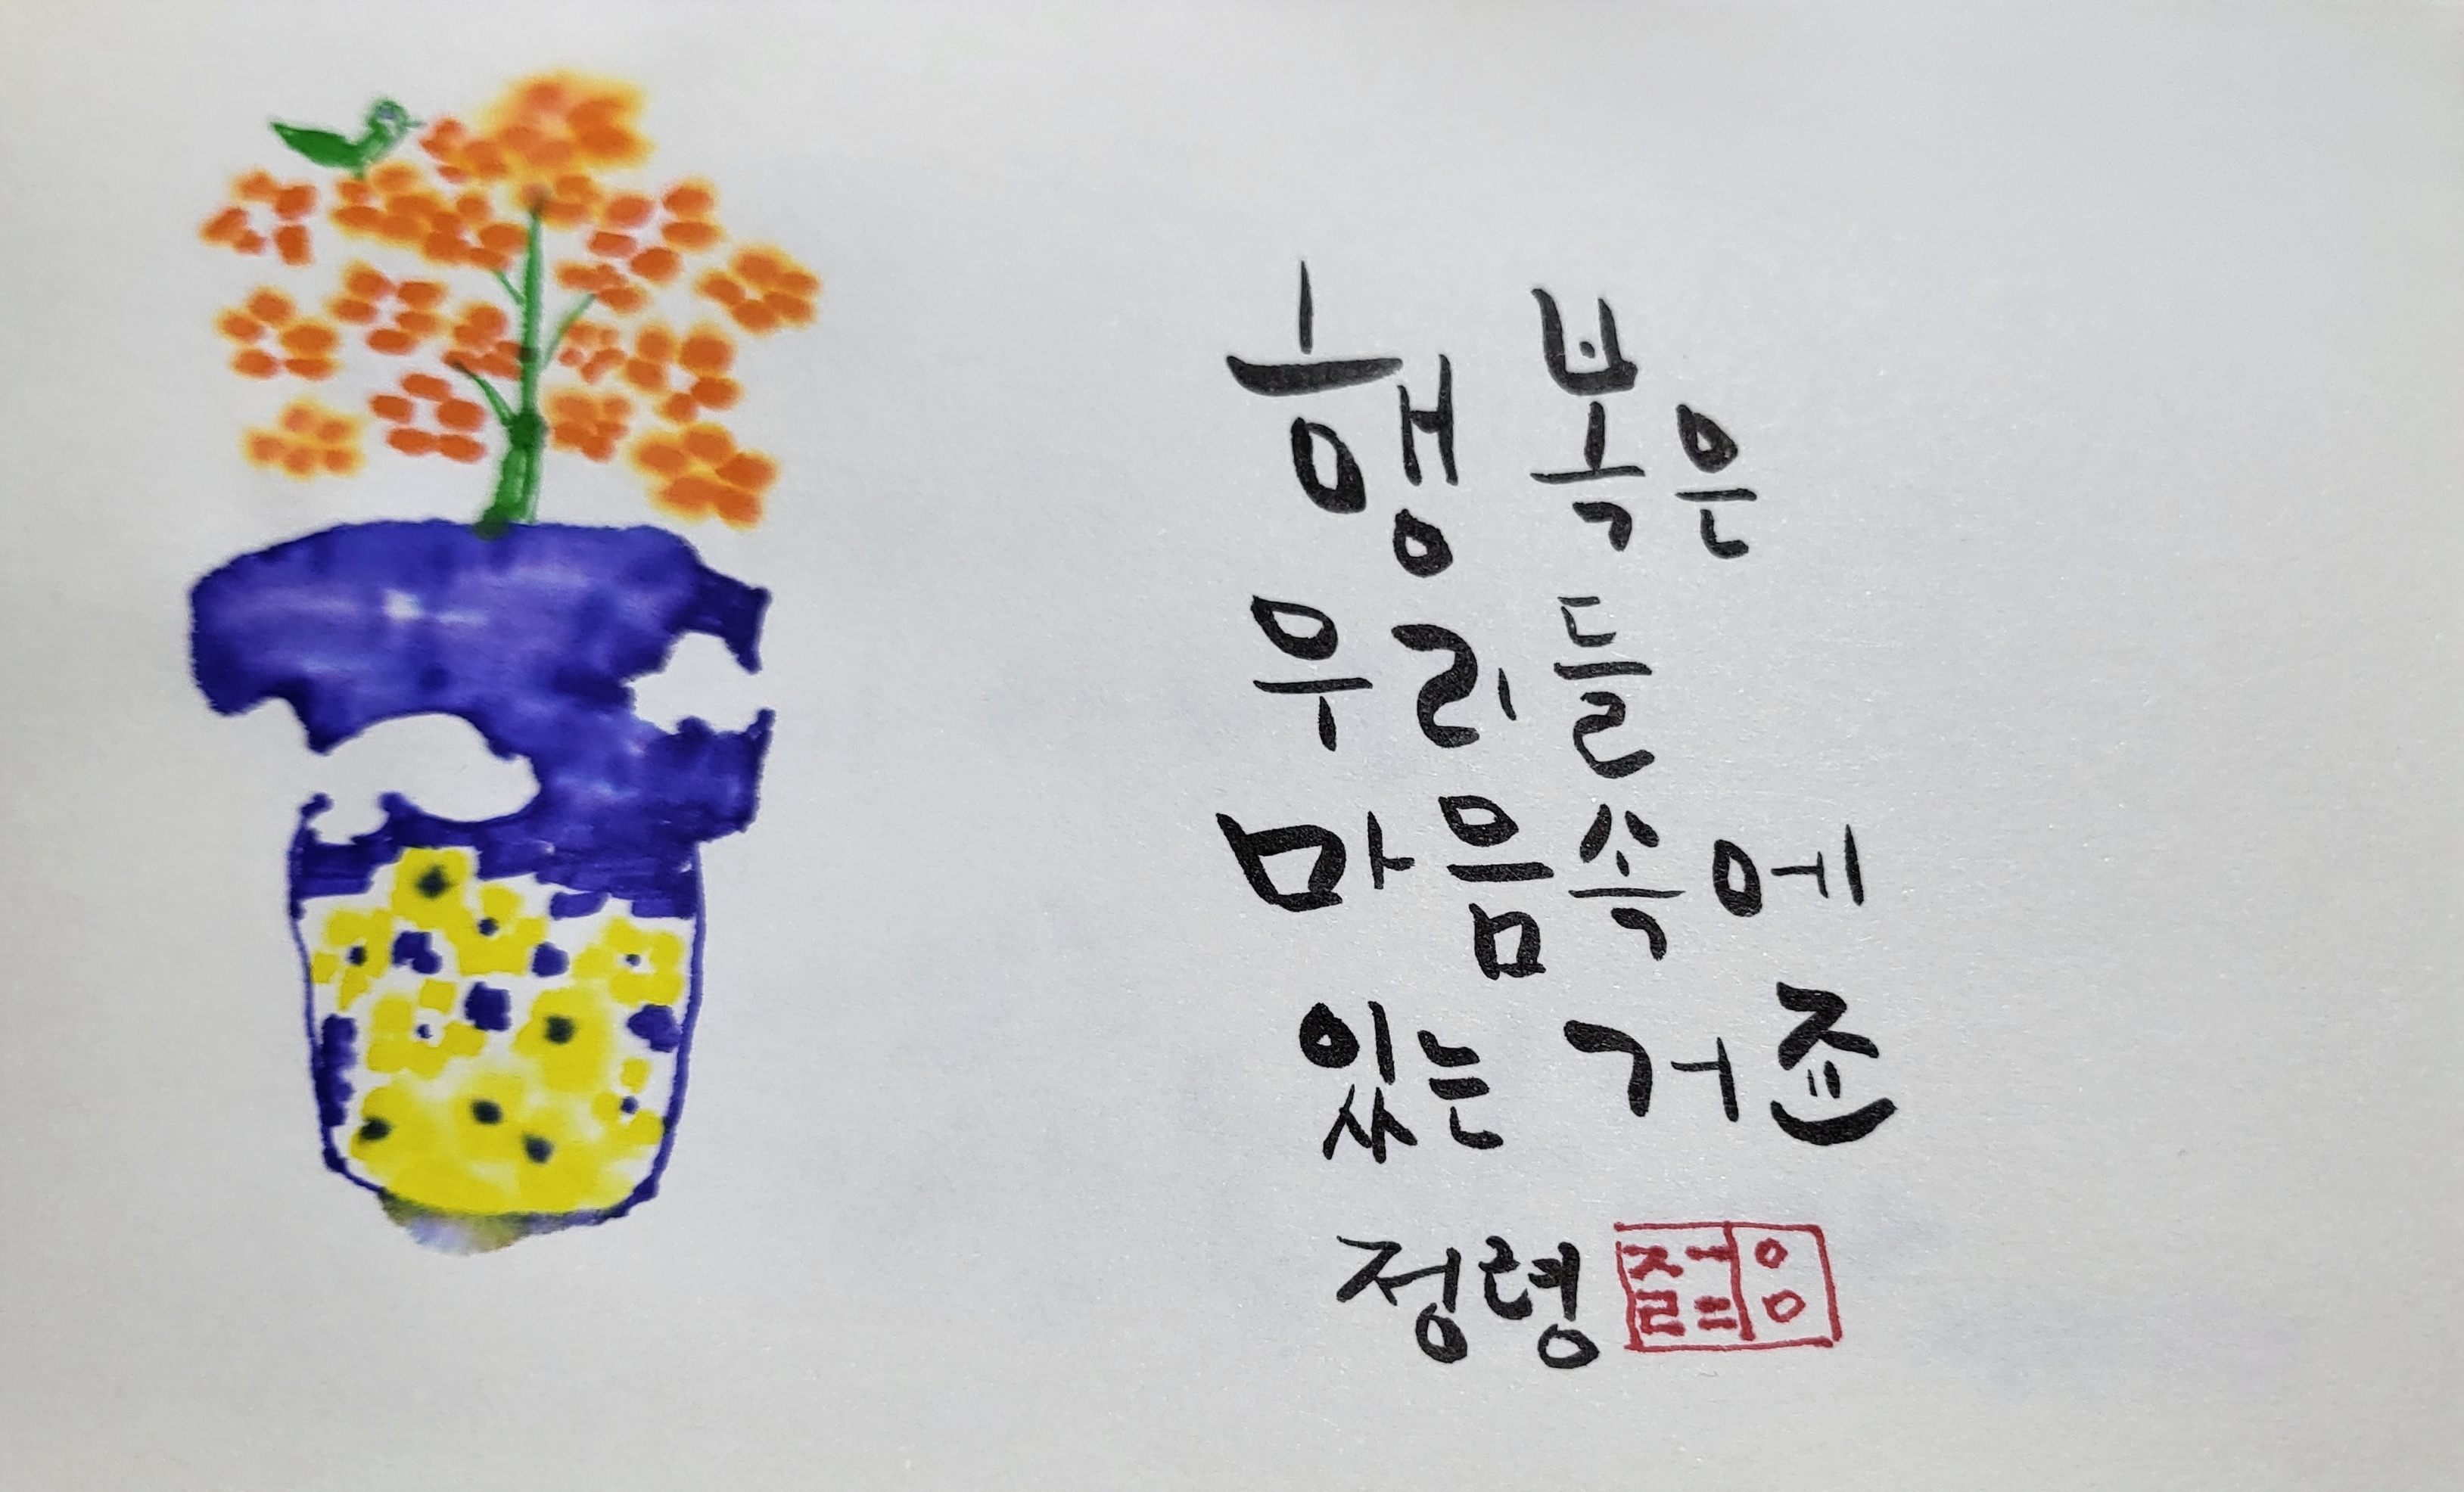 행복은
우리들
마음속에
있는 거죠
정령